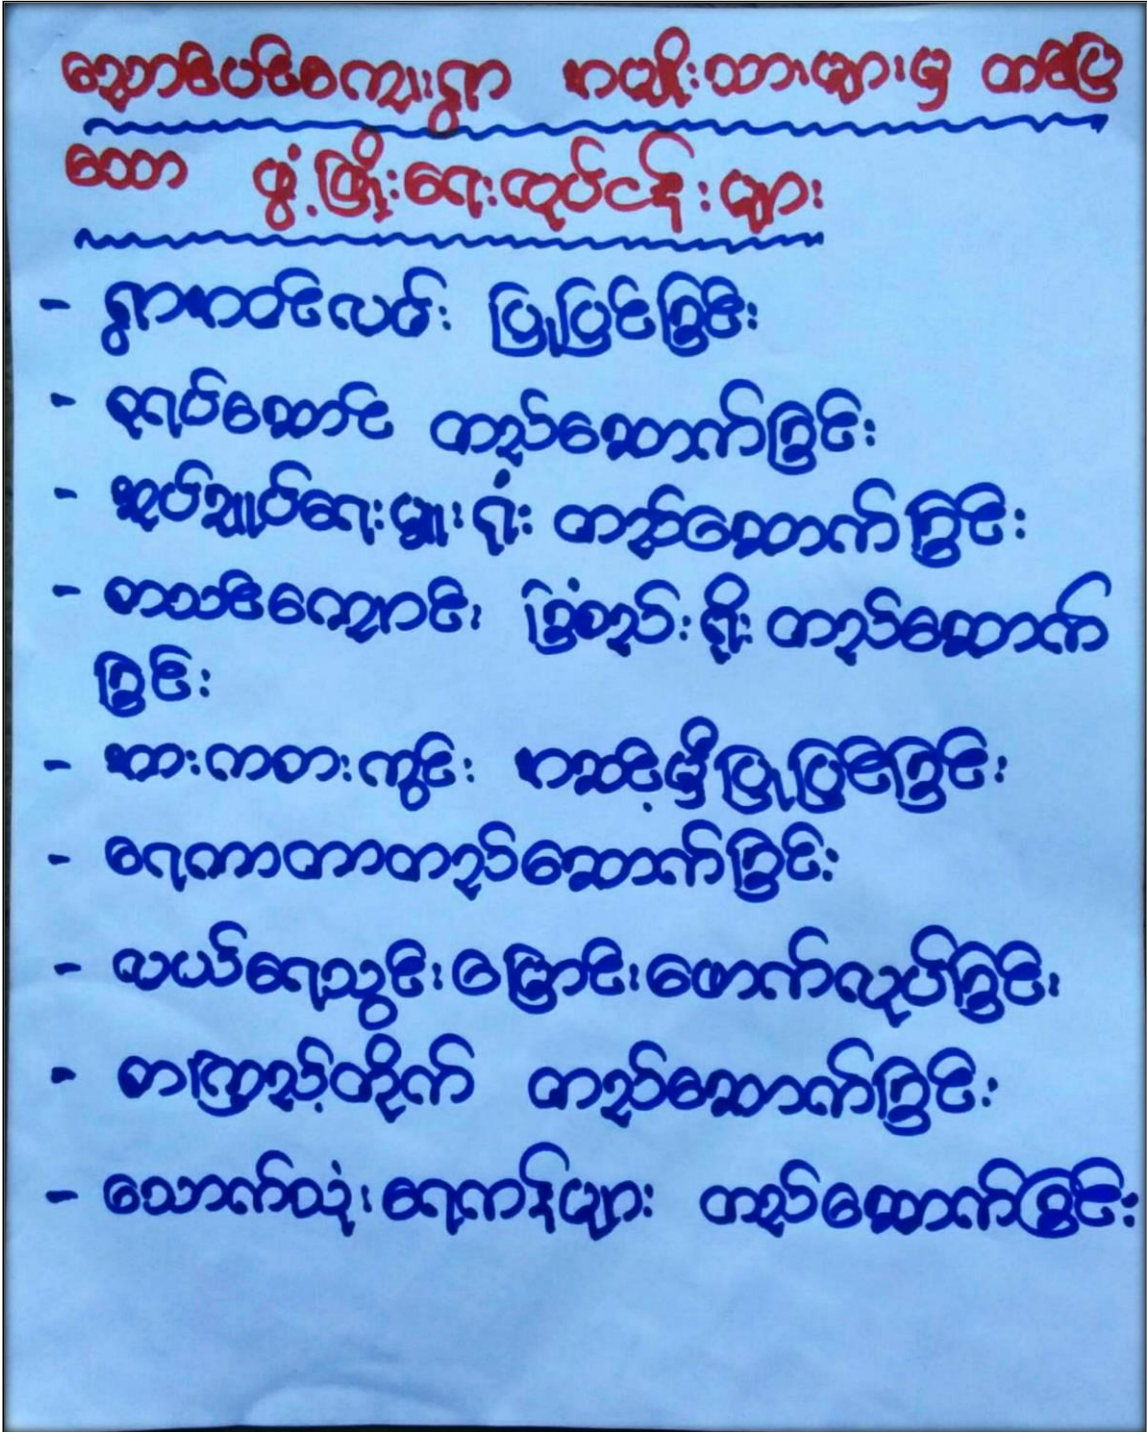 ညောင်ပင်စကျေးရွာ အမျိုးသားများမှ တင်ပြ
သော ဖွံ့ဖြိုးရေးလုပ်ငန်းများ
- ရွာအဝင်လမ်း ပြုပြင်ခြင်း
- စုရပ်ဆောင် တည်ဆောက်ခြင်း
- အုပ်ချုပ်ရေးမှူးရုံး တည်ဆောက်ခြင်း
- စာသင်ကျောင်း ခြံစည်းရိုး တည်ဆောက်
ခြင်း
- အားကစားကွင်း အဆင့်မှီပြုပြင်ခြင်း
- ရေကာတာတည်ဆောက်ခြင်း
- လယ်ရေသွင်းမြောင်းဖောက်လုပ်ခြင်း
- စာကြည့်တိုက် တည်ဆောက်ခြင်း
- သောက်သုံးရေကန်များ တည်ဆောက်ခြင်း